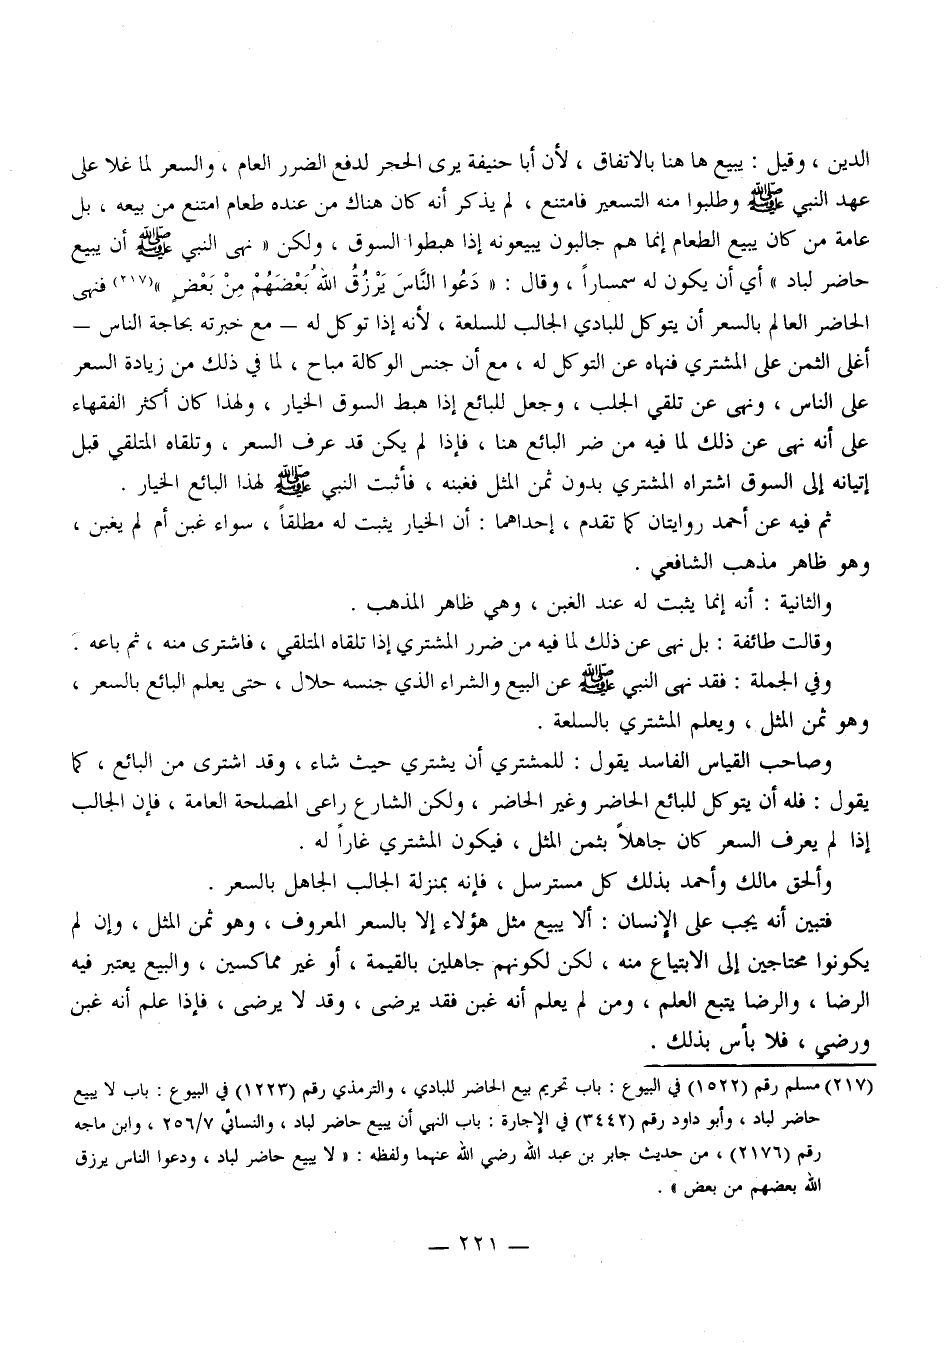 الدين ، وقيل : يبيع ها هنا بالاتفاق ، لأن أبا حنيفة يرى الحجر لدفع الضرر العام ، والسعر لما غلا على
عهد النبي ﷺ وطلبوا منه التسعير فامتنع ، لم يذكر أنه كان هناك من عنده طعام امتنع من بيعه ، بل
عامة من كان يبيع الطعام إنما هم جالبون يبيعونه إذا هبطوا السوق ، ولكن « نهى النبي ﷺ أن يبيع
حاضر لباد » أي أن يكون له سمساراً ، وقال : « دَعُوا النَّاسَ يَرْزُقُ اللهُ بَعْضَهُمْ مِنْ بَعْضٍ »(٢١٧) فنهى
الحاضر العالم بالسعر أن يتوكل للبادي الجالب للسلعة ، لأنه إذا توكل له — مع خبرته بحاجة الناس —
أغلى الثمن على المشتري فنهاه عن التوكل له ، مع أن جنس الوكالة مباح ، لما في ذلك من زيادة السعر
على الناس ، ونهى عن تلقي الجلب ، وجعل للبائع إذا هبط السوق الخيار ، ولهذا كان أكثر الفقهاء
على أنه نهى عن ذلك لما فيه من ضر البائع هنا ، فإذا لم يكن قد عرف السعر ، وتلقاه المتلقي قبل
إتيانه إلى السوق اشتراه المشتري بدون ثمن المثل فغبنه ، فأثبت النبي ﷺ لهذا البائع الخيار .
ثم فيه عن أحمد روايتان كما تقدم ، إحداهما : أن الخيار يثبت له مطلقاً ، سواء غبن أم لم يغبن ،
وهو ظاهر مذهب الشافعي .
والثانية : أنه إنما يثبت له عند الغبن ، وهي ظاهر المذهب .
وقالت طائفة : بل نهى عن ذلك لما فيه من ضرر المشتري إذا تلقاه المتلقي ، فاشترى منه ، ثم باعه .
وفي الجملة : فقد نهى النبي ﷺ عن البيع والشراء الذي جنسه حلال ، حتى يعلم البائع بالسعر ،
وهو ثمن المثل ، ويعلم المشتري بالسلعة .
وصاحب القياس الفاسد يقول : للمشتري أن يشتري حيث شاء ، وقد اشترى من البائع ، كما
يقول : فله أن يتوكل للبائع الحاضر وغير الحاضر ، ولكن الشارع راعى المصلحة العامة ، فإن الجالب
إذا لم يعرف السعر كان جاهلاً بثمن المثل ، فيكون المشتري غاراً له .
وألحق مالك وأحمد بذلك كل مسترسل ، فإنه بمنزلة الجالب الجاهل بالسعر .
فتبين أنه يجب على الإنسان : ألا يبيع مثل هؤلاء إلا بالسعر المعروف ، وهو ثمن المثل ، وإن لم
يكونوا محتاجين إلى الابتياع منه ، لكن لكونهم جاهلين بالقيمة ، أو غير مماكسين ، والبيع يعتبر فيه
الرضا ، والرضا يتبع العلم ، ومن لم يعلم أنه غبن فقد يرضى ، وقد لا يرضى ، فإذا علم أنه غبن
ورضي ، فلا بأس بذلك .
(٢١٧) مسلم رقم (١٥٢٢) في البيوع : باب تحريم بيع الحاضر للبادي ، والترمذي رقم (١٢٢٣) في البيوع : باب لا يبيع
حاضر لباد ، وأبو داود رقم (٣٤٤٢) في الإجارة : باب النهي أن يبيع حاضر لباد ، والنسائي ٢٥٦/٧ ، وابن ماجه
رقم (٢١٧٦) ، من حديث جابر بن عبد الله رضي الله عنهما ولفظه : « لا يبيع حاضر لباد ، ودعوا الناس يرزق
الله بعضهم من بعض » .
— ٢٢١ —